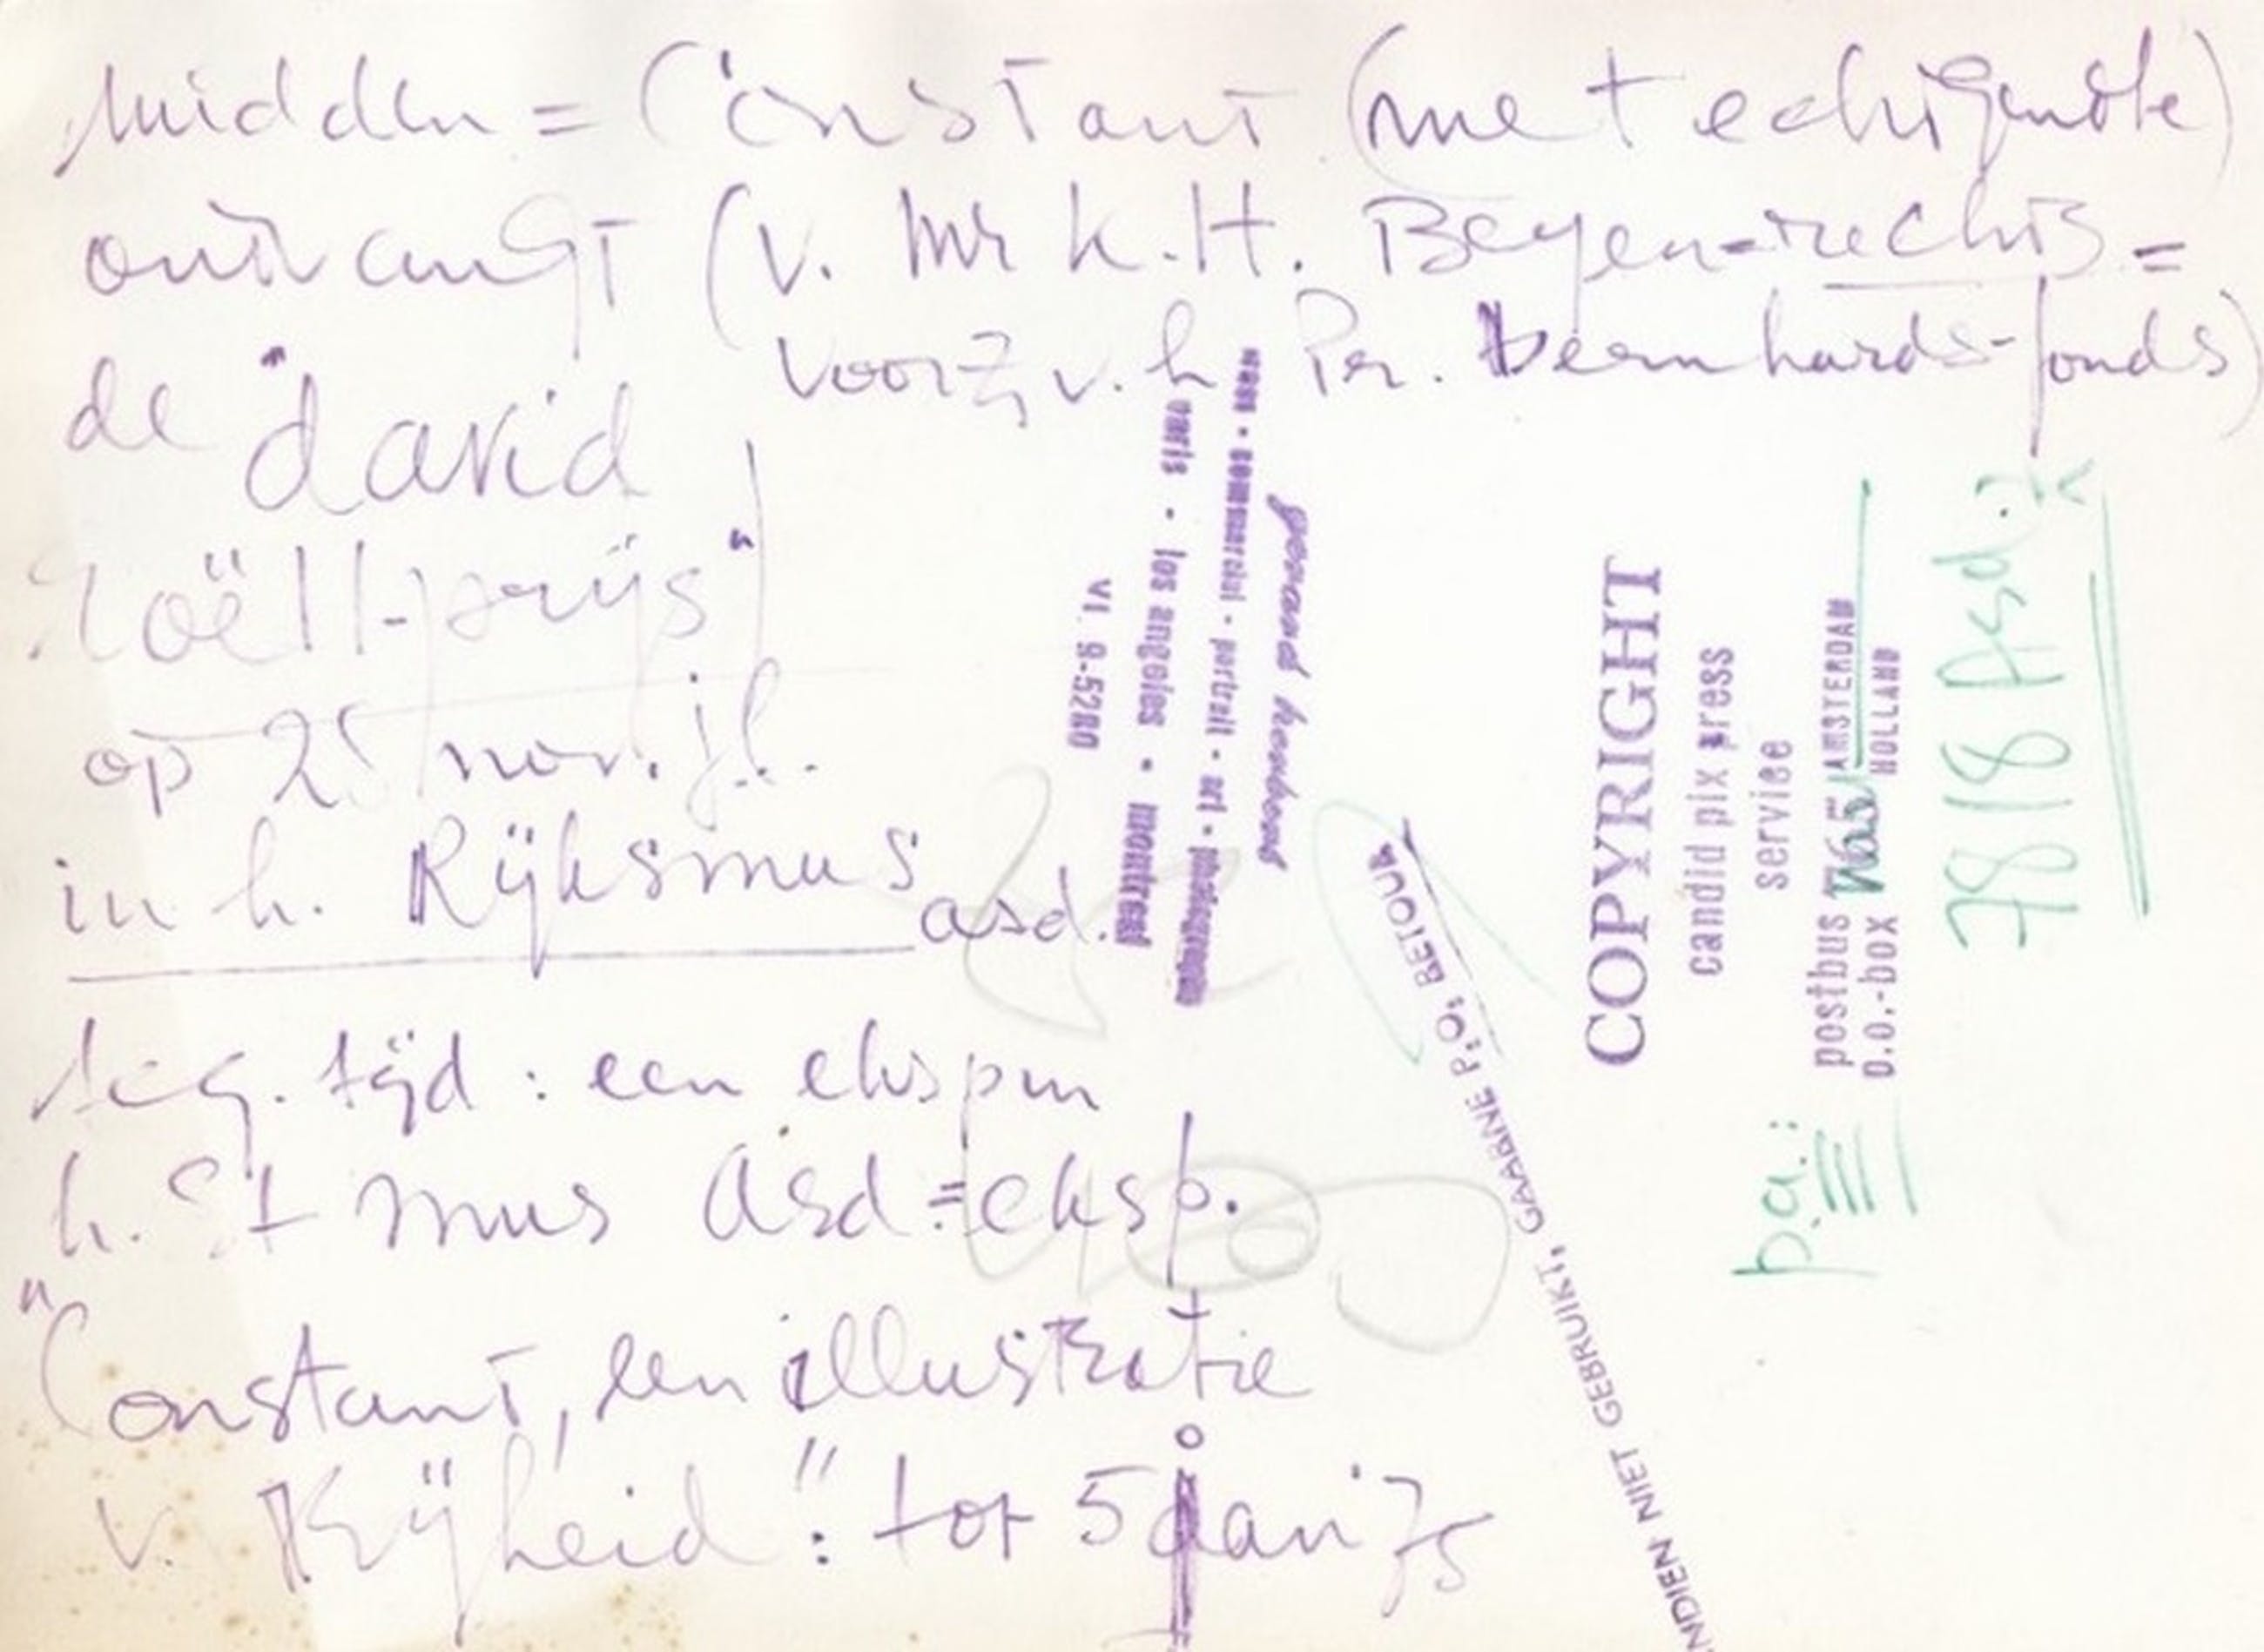 midden = Constant (met echtgenote)
ontvangt (v. Mr K.H. Beyen-rechts =
voorz. v. h Pr. bernhards-fonds)
de "david
röell-prijs"
op 25 nov. j.l.
in h. Rijksmus asd.
teg. tijd: een eksp in
h. St mus Asd = eksp.
"Constant, een illustratie
v. Vrijheid": tot 5 jan '75
news • commercial - portrait - art - photographs
paris • los angeles • montreal
VI. 9-5280
COPYRIGHT
candid pix press
service
postbus AMSTERDAM
p.o.-box HOLLAND
7818 Asd.
p.a.:
INDIEN NIET GEBRUIKT, GAARNE P.O. RETOUR